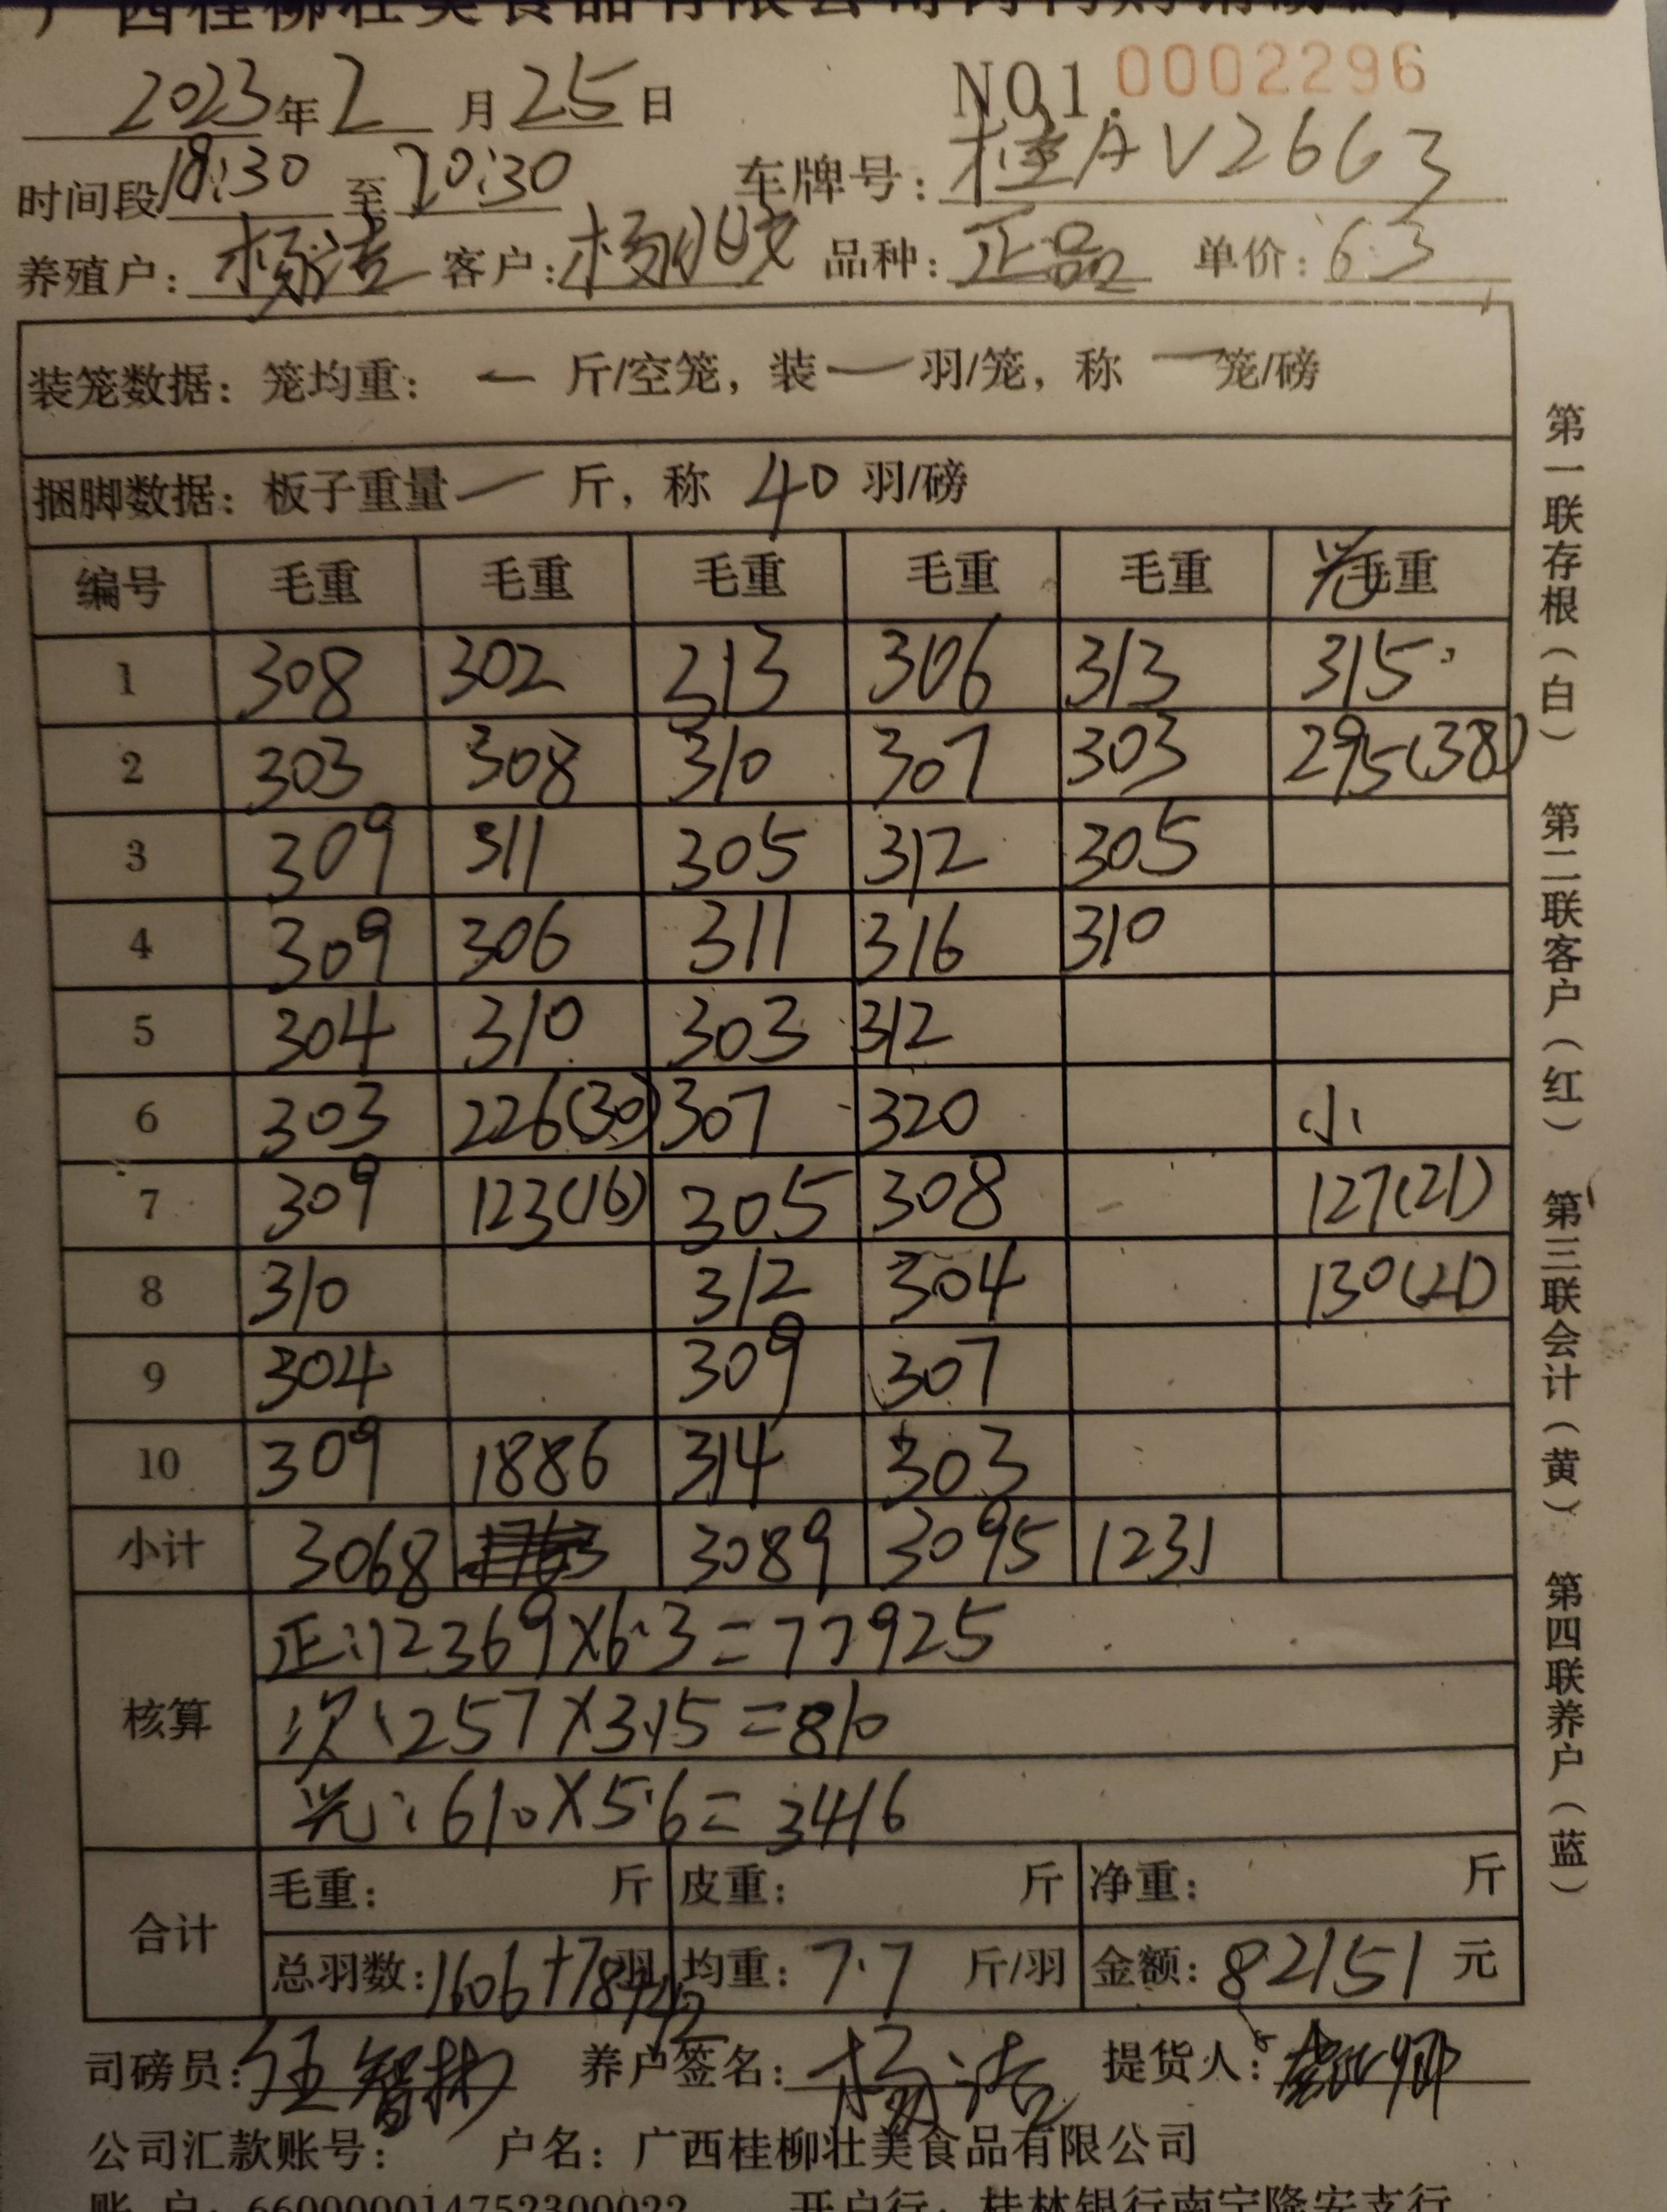 广西桂柳壮美食品有限公司
2023年2月25日 NO1.0002296
时间段18:30至20:30 车牌号:桂AV2663
养殖户:杨浩 客户: 品种:正品 单价:6.3
装笼数据:笼均重: 一 斤/空笼,装一羽/笼,称一笼/磅
捆脚数据:板子重量一斤,称 40 羽/磅
编号 毛重 毛重 毛重 毛重 毛重 光毛重
1 308 302 313 306 313 315
2 303 308 310 307 303 295(38)
3 309 311 305 312 305
4 309 306 311 316 310
5 304 310 303 312
6 303 226(30) 307 320 小
7 309 123(16) 305 308 127(21)
8 310 312 304 130(21)
9 304 309 307
10 309 1886 314 303
小计 3068 3089 3095 1231
核算
正:12369×6.3=77925
次:257×3.15=810
光:610×5.6=3416
合计
毛重: 斤 皮重: 斤 净重: 斤
总羽数:1606+78+42羽 均重:7.7 斤/羽 金额:82151元
司磅员:伍智彬 养户签名:杨浩 提货人:
公司汇款账号: 户名:广西桂柳壮美食品有限公司
账 户:660000014752300022 开户行:桂林银行南宁隆安支行
第一联存根(白) 第二联客户(红) 第三联会计(黄) 第四联养户(蓝)